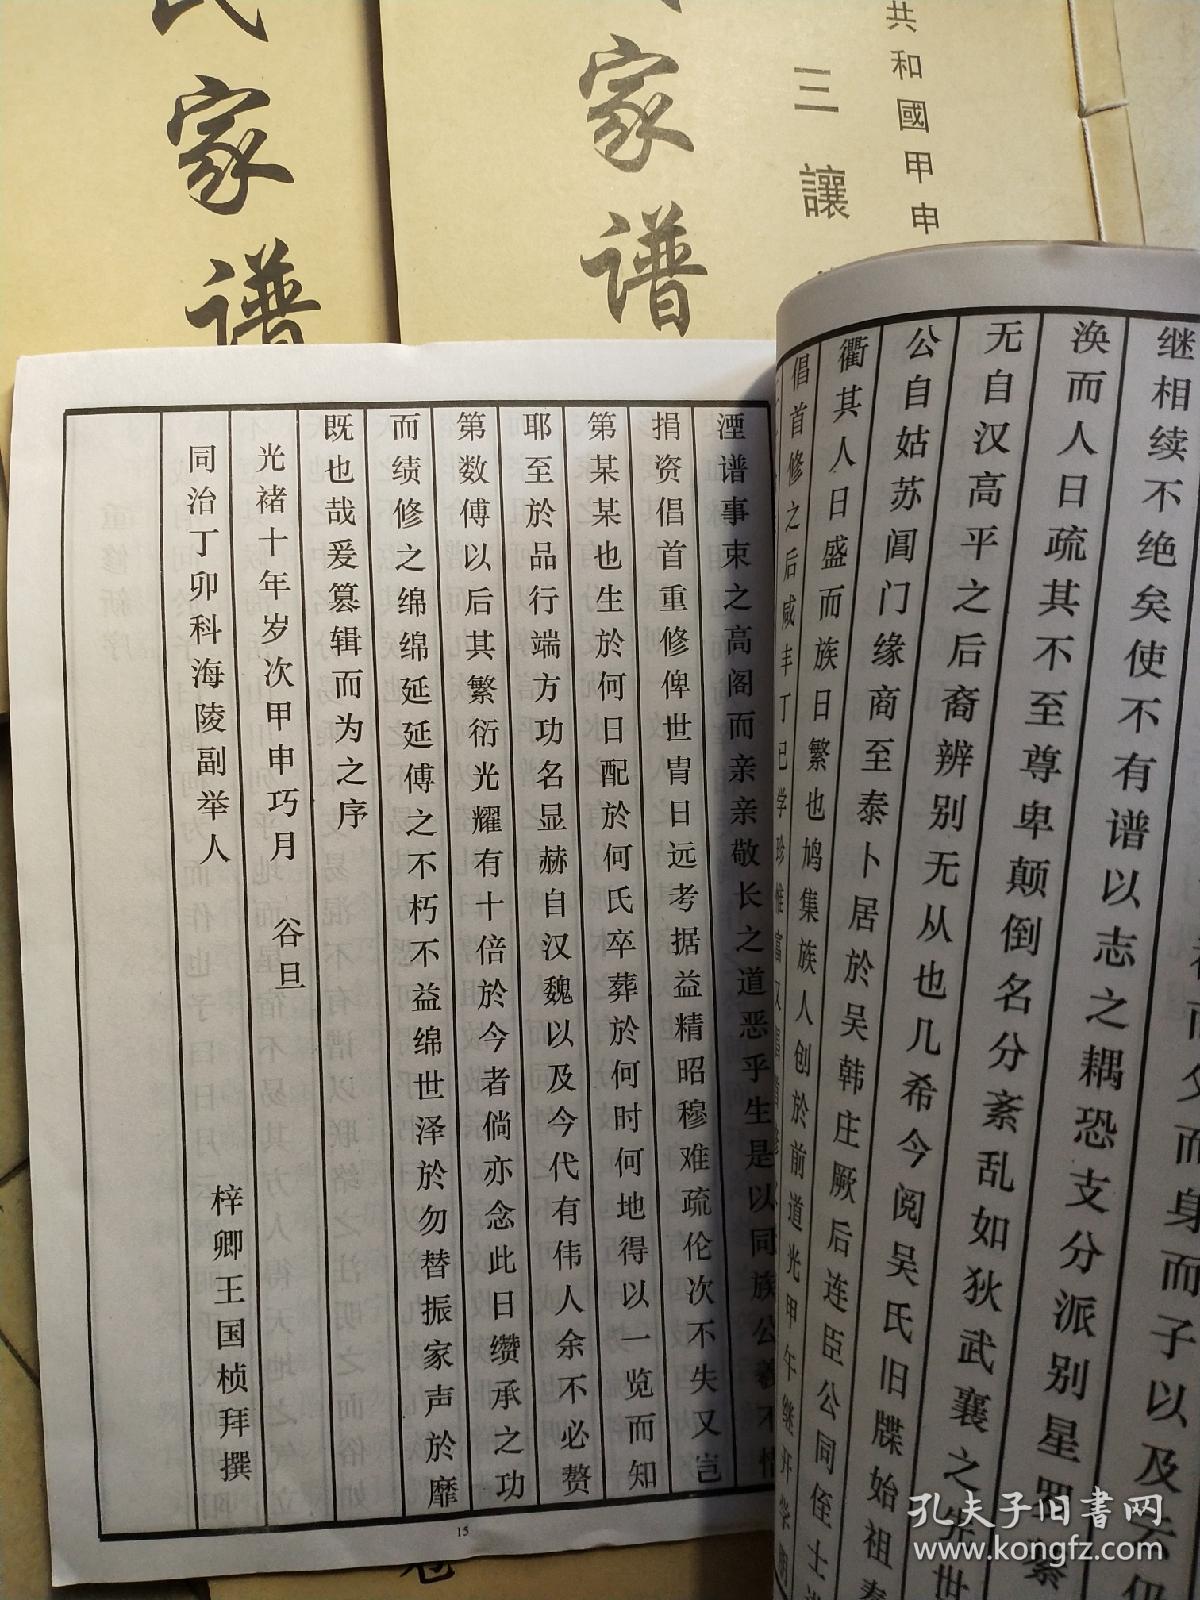 家谱
家谱
共和國甲申
三讓
继相续不绝矣使不有谱以志之耦恐支分派别星罗綮
涣而人日疏其不至尊卑颠倒名分紊乱如狄武襄之先世
无自汉高平之后裔辨别无从也几希今阅吴氏旧牒始祖泰
公自姑苏阊门缘商至泰卜居於吴韩庄厥后连臣公同侄士
衢其人日盛而族日繁也鸠集族人创於前道光甲午继开
倡首修之后咸丰丁巳学珍惟富
湮谱事束之高阁而亲亲敬长之道恶乎生是以同族公義不惜
捐资倡首重修俾世胄日远考据益精昭穆难疏伦次不失又岂
第某某也生於何日配於何氏卒葬於何时何地得以一览而知
耶至於品行端方功名显赫自汉魏以及今代有伟人余不必赘
第数傅以后其繁衍光耀有十倍於今者倘亦念此日缵承之功
而绩修之绵绵延延傅之不朽不益绵世泽於勿替振家声於靡
既也哉爰篡辑而为之序
光褚十年岁次甲申巧月 谷旦
同治丁卯科海陵副举人 梓卿王国桢拜撰
15
孔夫子旧书网
www.kongfz.com